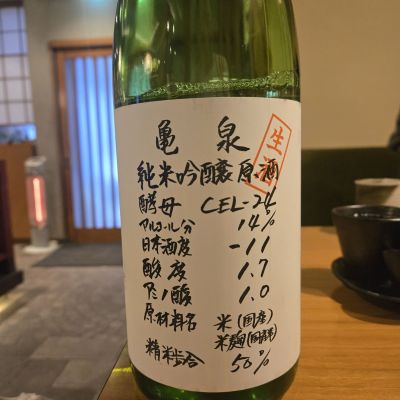 亀泉
生酒
純米吟醸原酒
酵母 CEL-24
アルコール分 14%
日本酒度 -11
酸度 1.7
アミノ酸 1.0
原材料名 米(国産)
米麹(国産米)
精米歩合 50%